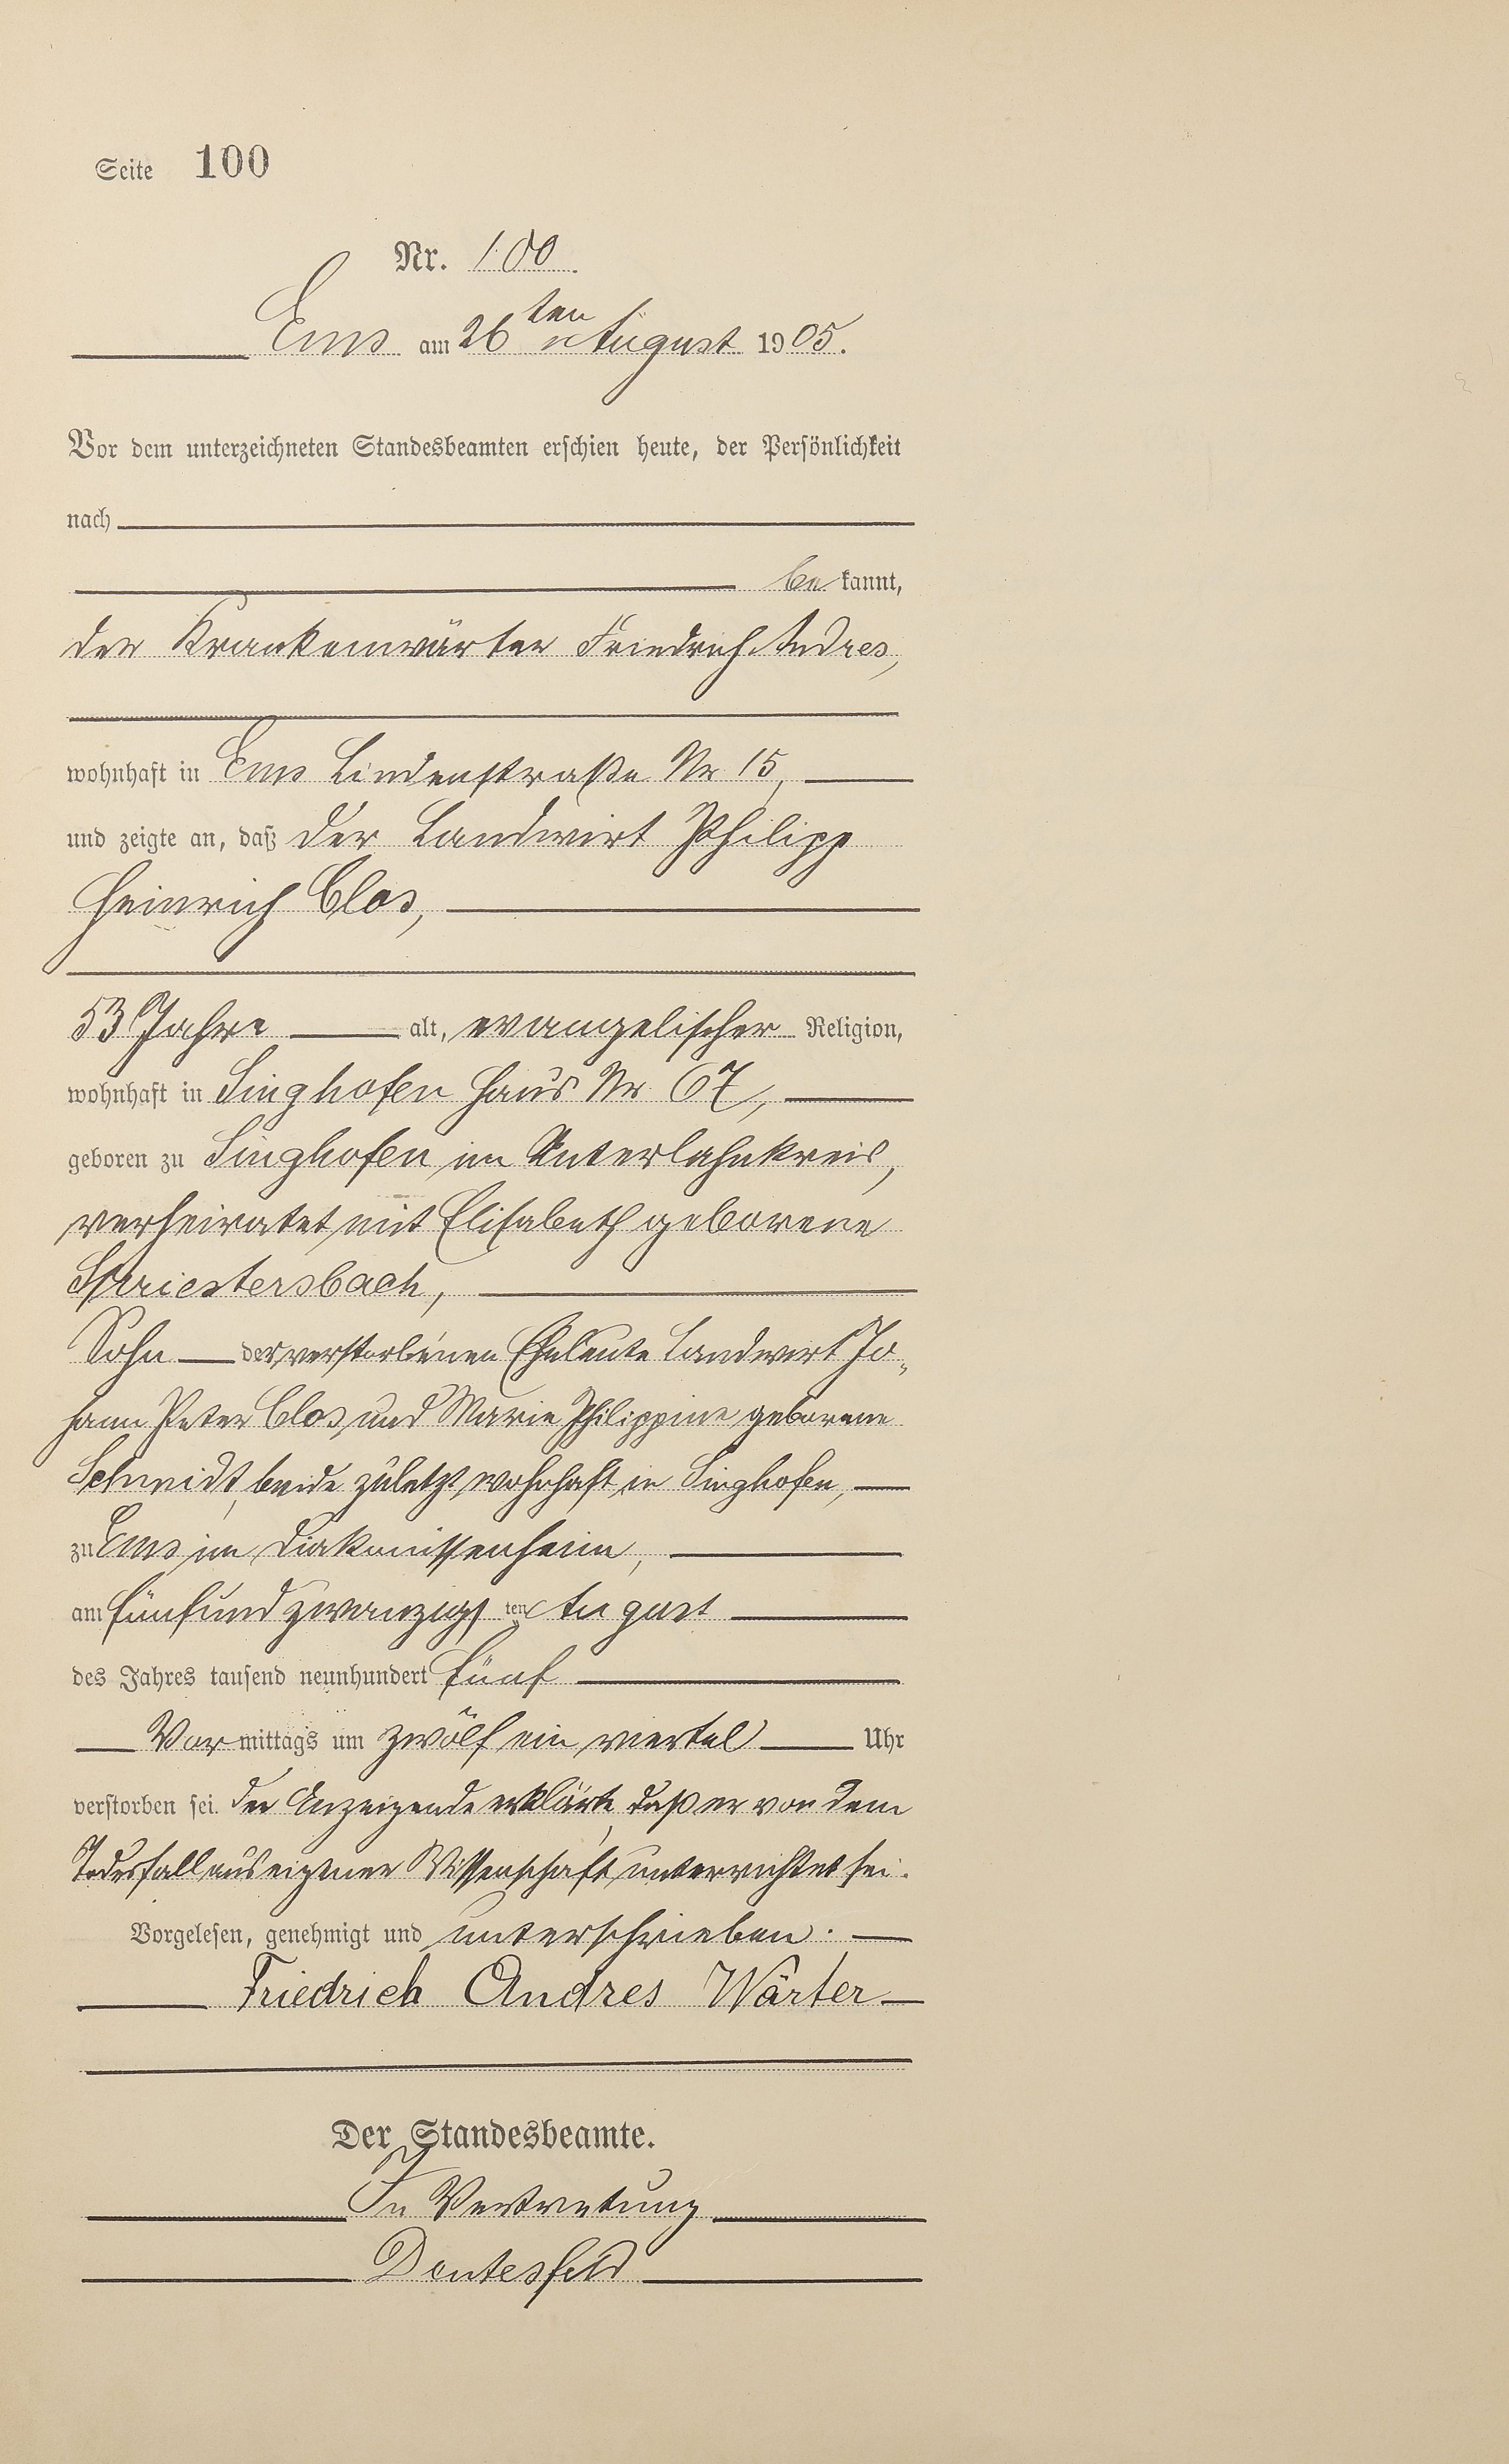 Seite 100
Nr. 100.
Ems am 26ten August 1905.
Vor dem unterzeichneten Standesbeamten erschien heute, der Persönlichkeit
nach
be kannt,
der Krankenwärter Friedrich Andres,
wohnhaft in Ems Lindenstraße Nr 15,
und zeigte an, daß der Landwirt Philipp
Heinrich Clos,
53 Jahre alt, evangelischer Religion,
wohnhaft in Singhofen Haus Nr. 67,
geboren zu Singhofen im Unterlahnkreis,
verheiratet mit Elisabeth geborene
Spriestersbach,
Sohn der verstorbenen Eheleute Landwirt Jo-
hann Peter Clos und Marie Philippine geborene
Schmidt, beide zuletzt wohnhaft in Singhofen,
zu Ems im Diakonissenheim,
am fünfundzwanzigs ten August
des Jahres tausend neunhundert fünf
Vor mittags um zwölf ein viertel Uhr
verstorben sei. Der Anzeigende erklärte, daß er von dem
Todesfall aus eigener Wissenschaft unterrichtet sei.
Vorgelesen, genehmigt und unterschrieben.
Friedrich Andres Wärter
Der Standesbeamte.
In Vertretung